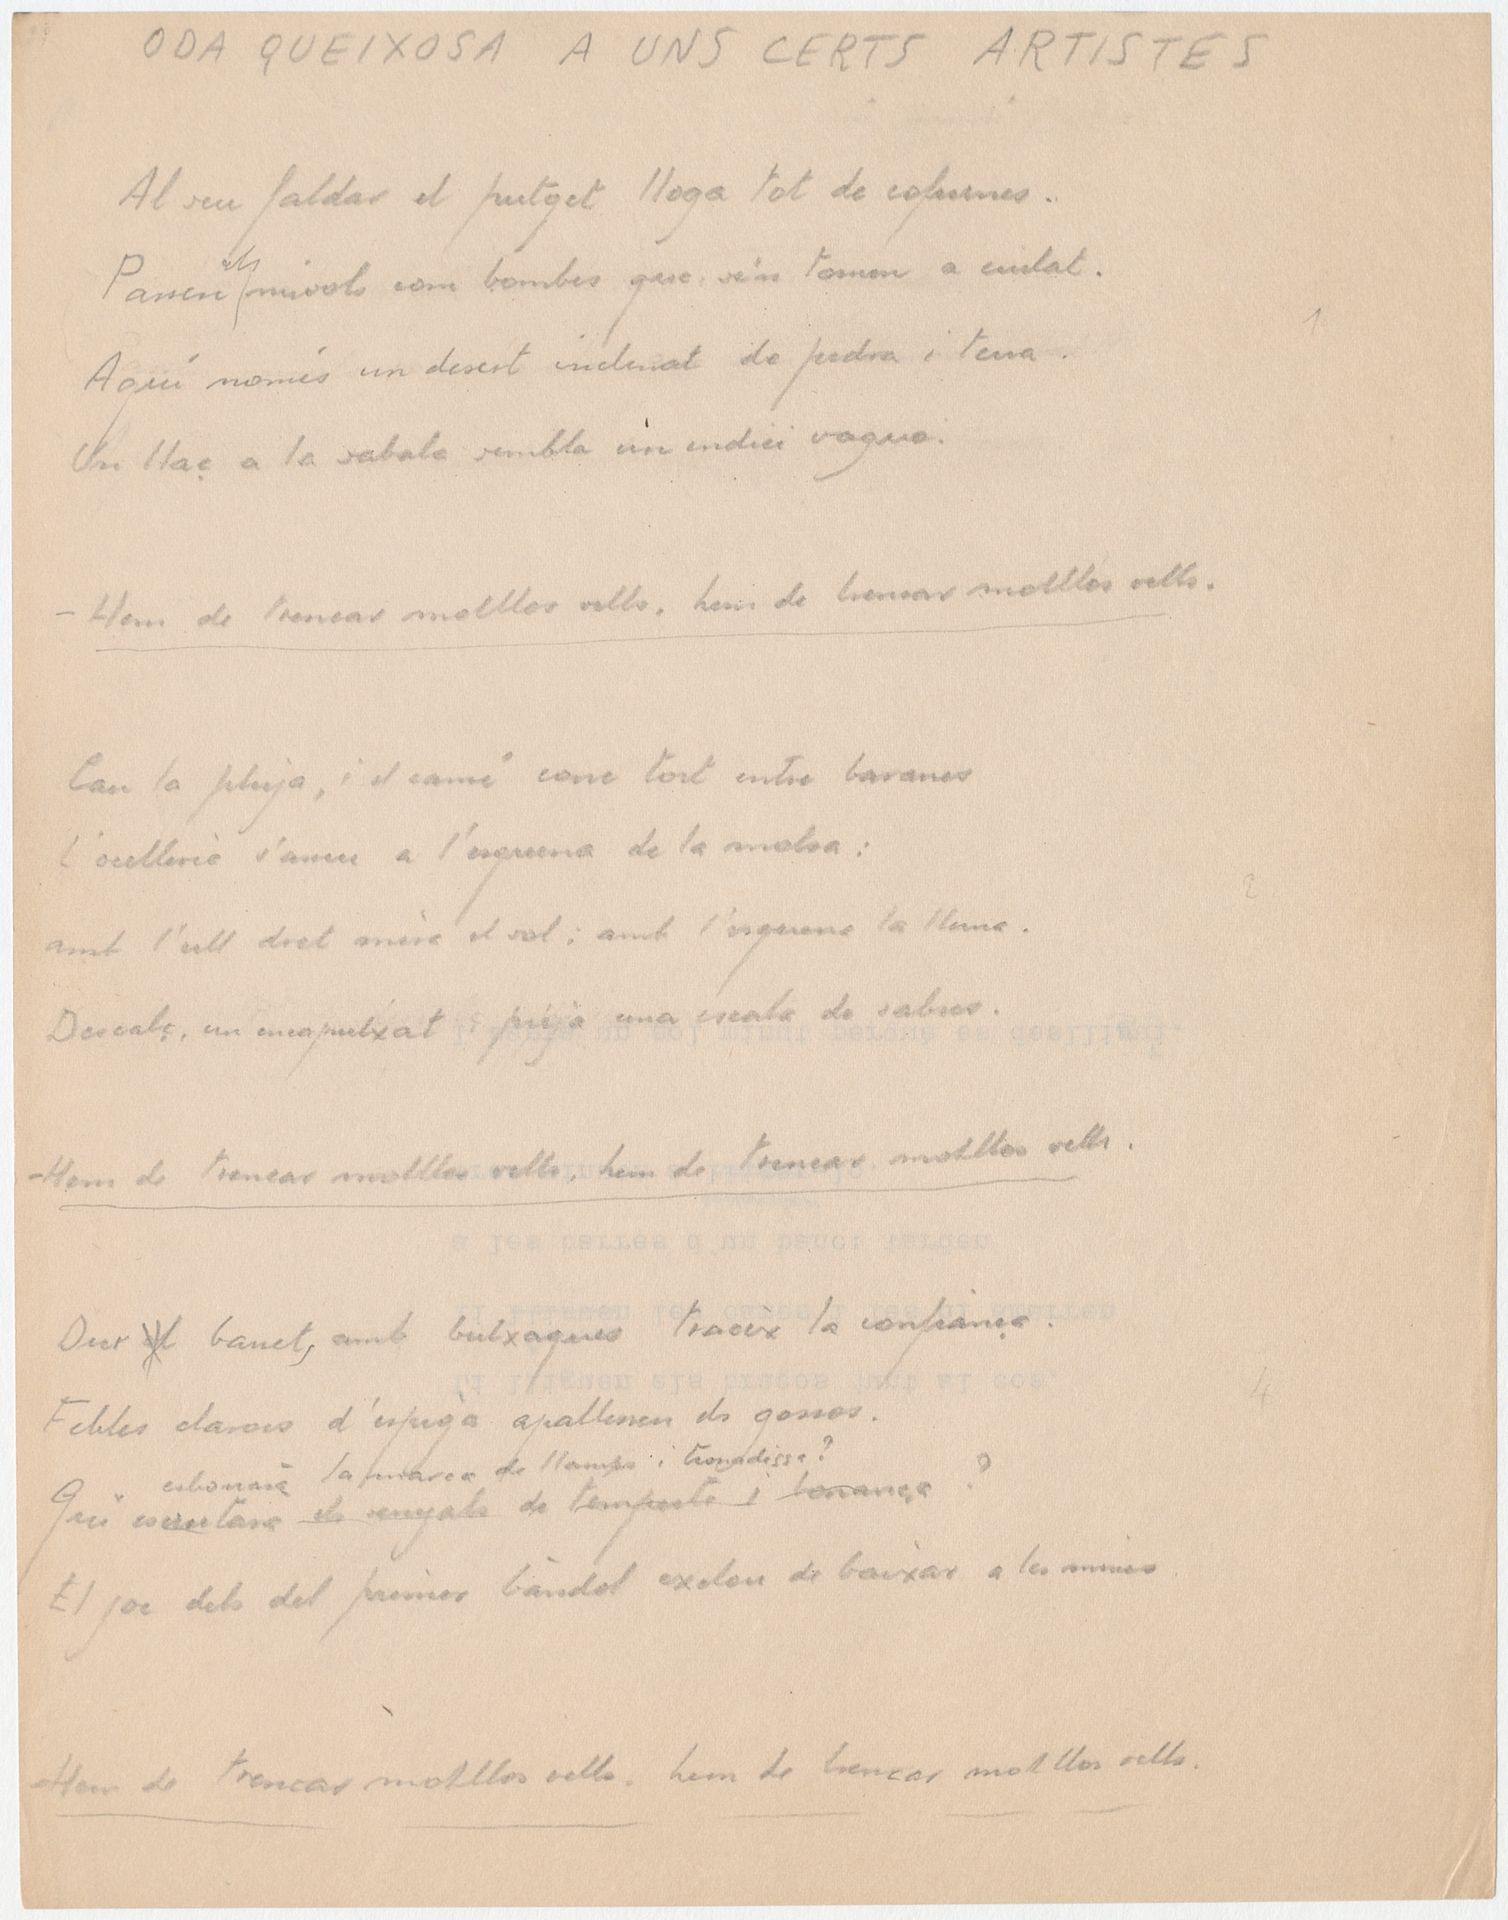 ODA QUEIXOSA A UNS CERTS ARTISTES
Al seu faldar el putget lloga tot de columnes.
Passen els núvols com bombes que se'n tornen a ciutat.
1
Aquí només un desert ordenat de pedra i terra.
Un llaç a la sabata sembla un indici vague.
- Hem de trencar motllos vells, hem de trencar motllos vells.
Cau la pluja, i el camí corre tort entre baranes
L'ocelleria s'ameu a l'esquena de la molsa:
2
amb l'ull dret mira el sol; amb l'esquerre la lluna.
Descalç, un encaputxat puja una escala de sabres.
- Hem de trencar motllos vells, hem de trencar motllos vells.
Dur el barret, amb butxaques traeix la confiança.
4
Febles clarors d'espiga apallissen els gossos.
esbonarà la marca de llamps i tronadissa?
Qui escrutarà els senyals de tempesta i bonança?
El joc dels del primer bàndol exclou de baixar a les mines
- Hem de trencar motllos vells, hem de trencar motllos vells.